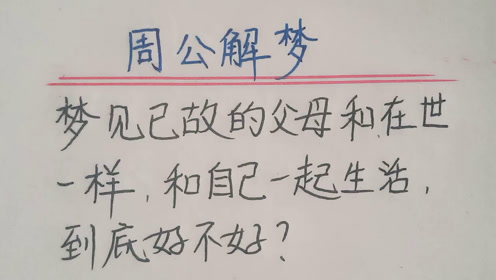 周公解梦
梦见已故的父母和在世
一样，和自己一起生活，
到底好不好？